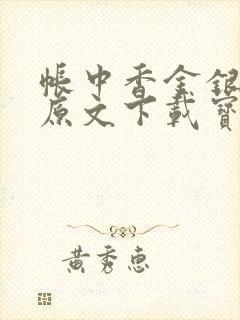 帳中香金銀
原文下載寶
黃秀惠